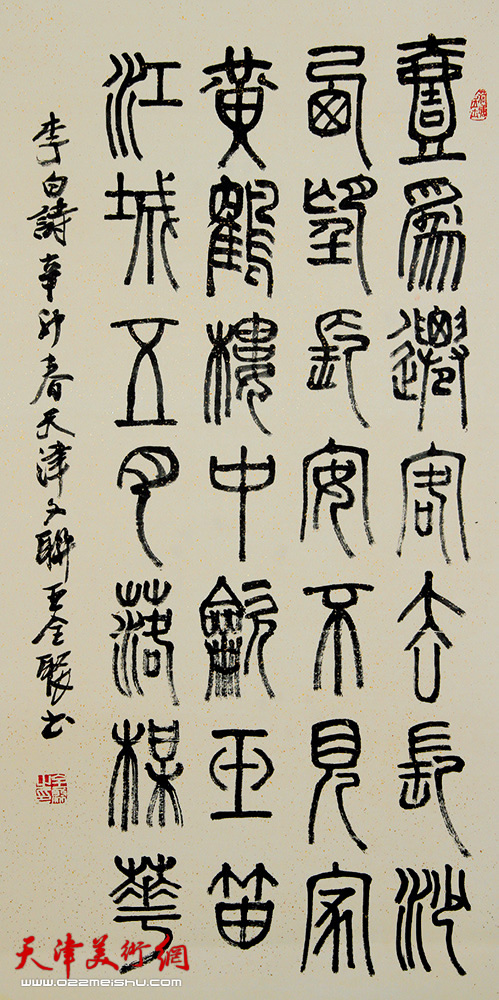 壹為遷客去長沙
西望長安不見家
黃鶴樓中龡玉笛
江城五月落楳華
李白詩辛卯春天津文聯王全聚书
天津美術網
www.022meishu.com